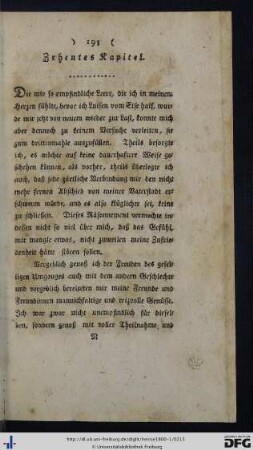 ) 193 (
Zehentes Kapitel.
Die mir so empfindliche Leere, die ich in meinem
Herzen fühlte, bevor ich Luisen vom Eise half, wur-
de mir jetzt von neuem wieder zur Last, konnte mich
aber dennoch zu keinem Versuche verleiten, sie
zum drittenmahle auszufüllen. Theils besorgte
ich, es möchte auf keine dauerhaftere Weise ge-
schehen können, als vorher, theils überlegte ich
auch, daß jede zärtliche Verbindung mir den nicht
mehr fernen Abschied von meiner Vaterstadt er-
schweren würde, und es also klüglicher sei, keine
zu schließen. Dieses Räsonnement vermochte in-
dessen nicht so viel über mich, daß das Gefühl,
mir mangle etwas, nicht zuweilen meine Zufrie-
denheit hätte stören sollen.
Vergeblich genoß ich der Freuden des gesel-
ligen Umganges auch mit dem andern Geschlechte
und vergeblich bereiteten mir meine Freunde und
Freundinnen mannichfaltige und reizvolle Genüsse.
Ich war zwar nicht unempfindlich für diesel-
ben, sondern genoß mit voller Theilnahme und
N
http://dl.ub.uni-freiburg.de/diglit/heroine1800-1/0213
© Universitätsbibliothek Freiburg
gefördert durch
DFG